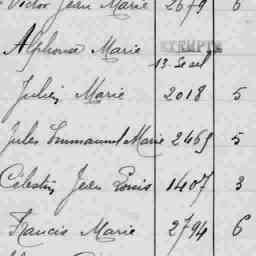 Victor Jean Marie 2679 6
Alphonse Marie EXEMPTÉ
13
Julien Marie 2018 5
Jules Emmanuel Marie 2469 5
Célestin Jean Louis 1407 3
Francis Marie 2794 6